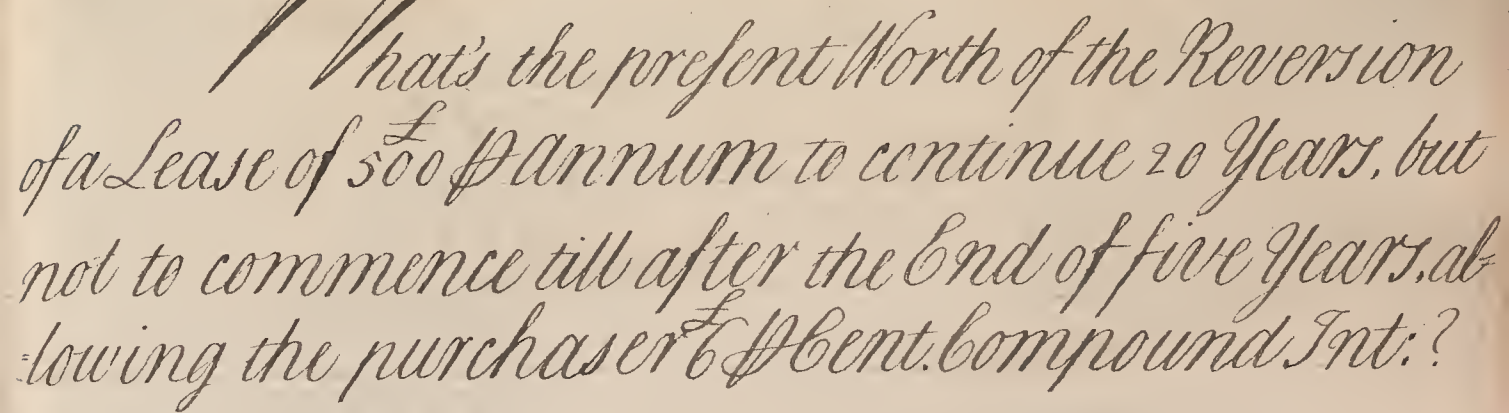 What's the preſent Worth of the Reversion
of a Lease of 500£ ⅌ Annum to continue 20 Years, but
not to commence till after the End of five Years, al=
=lowing the purchaser 6£ ⅌ Cent. Compound Int:?